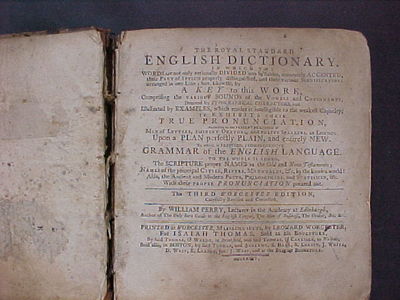 THE ROYAL STANDARD
ENGLISH DICTIONARY.
IN WHICH THE
WORDS are not only rationally DIVIDED into Syllables, accurately ACCENTED,
their PART of SPEECH properly distinguished, and their various SIGNIFICATIONS
arranged in one Line; but, likewise, by
A KEY to this WORK,
Comprising the VARIOUS SOUNDS of the VOWELS and CONSONANTS,
Denoted by TYPOGRAPHICAL CHARACTERS, and
Illustrated by EXAMPLES, which render it intelligible to the weakest Capacity;
IT EXHIBITS THEIR
TRUE PRONUNCIATION,
according to the present Practice of
Men of LETTERS, EMINENT ORATORS, and POLITE SPEAKERS, in LONDON;
Upon a PLAN perfectly PLAIN, and entirely NEW.
To which is prefixed, a COMPREHENSIVE
GRAMMAR of the ENGLISH LANGUAGE.
TO THE WHOLE IS ADDED,
The SCRIPTURE proper NAMES in the Old and New Testaments;
NAMES of the principal CITIES, RIVERS, MOUNTAINS, &c. in the known world;
Also, the Ancient and Modern POETS, PHILOSOPHERS, and STATESMEN, &c.
With their PROPER PRONUNCIATION pointed out.
The THIRD WORCESTER EDITION,
Carefully Revised and Corrected.
By WILLIAM PERRY, Lecturer in the Academy at Edinburgh,
Author of The Only Sure Guide to the English Tongue, The Man of Business, The Orator, &c. &c.
PRINTED at WORCESTER, MASSACHUSETTS, by LEONARD WORCESTER,
For ISAIAH THOMAS, Sold at his BOOKSTORE,